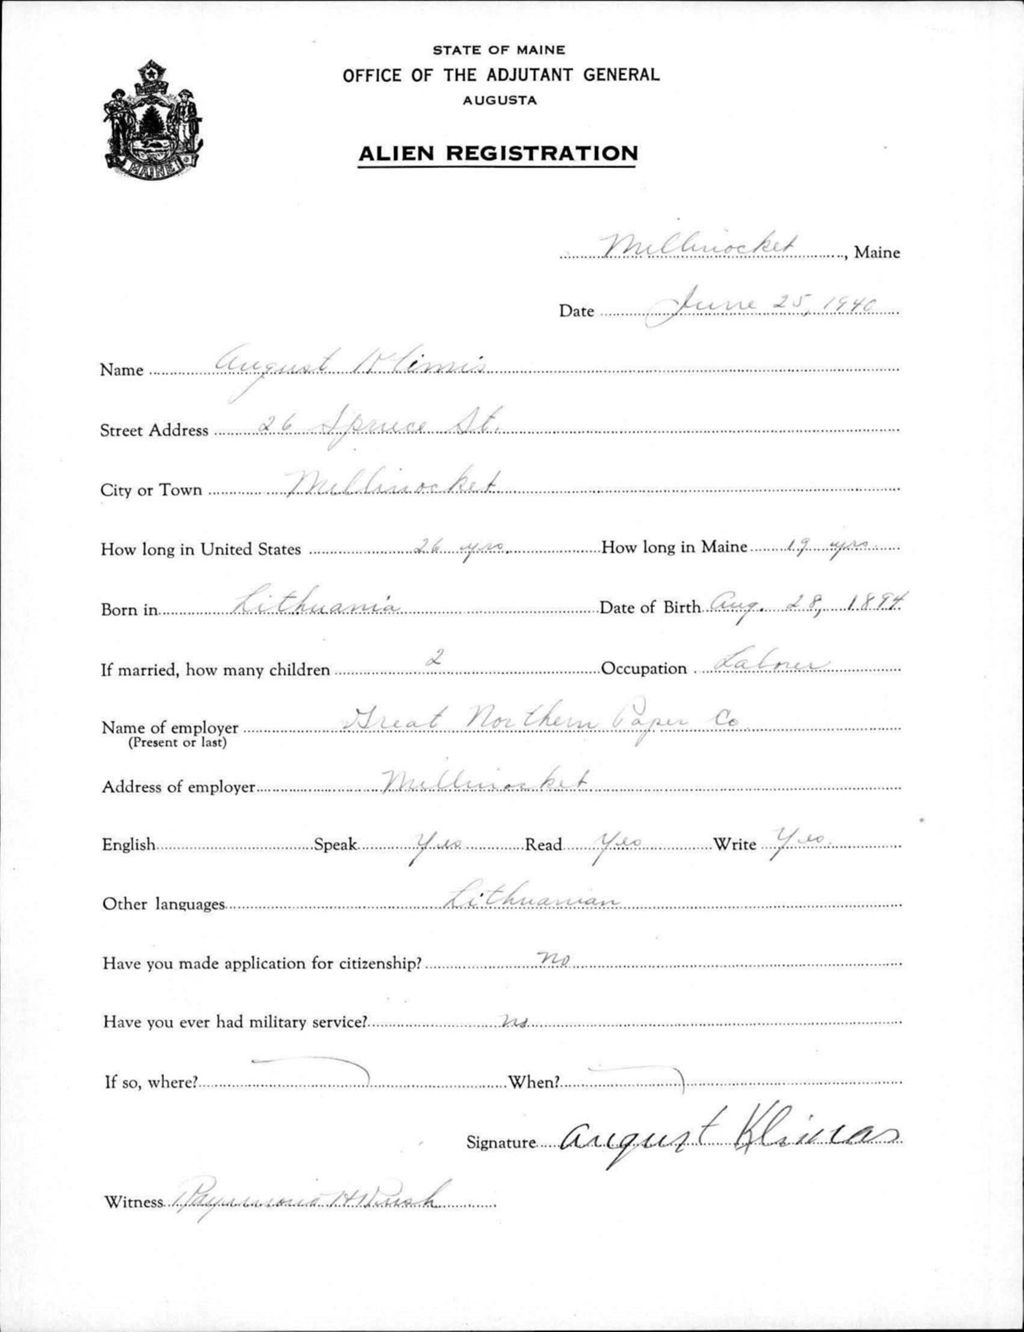 STATE OF MAINE
OFFICE OF THE ADJUTANT GENERAL
AUGUSTA
MAINE
ALIEN REGISTRATION
Millinocket, Maine
Date June 25, 1940
Name August Klimis
Street Address 26 Spruce St.
City or Town Millinocket
How long in United States 26 yrs. How long in Maine 19 yrs.
Born in Lithuania Date of Birth Aug. 28, 1894
If married, how many children 2 Occupation Laborer
Name of employer Great Northern Paper Co
(Present or last)
Address of employer Millinocket
English Speak Yes Read Yes Write Yes.
Other languages Lithuanian
Have you made application for citizenship? No
Have you ever had military service? No
If so, where? When?
Signature August Klimas
Witness Raymond H Rush